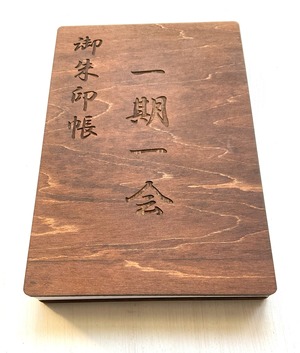 一期一会
御朱印帳